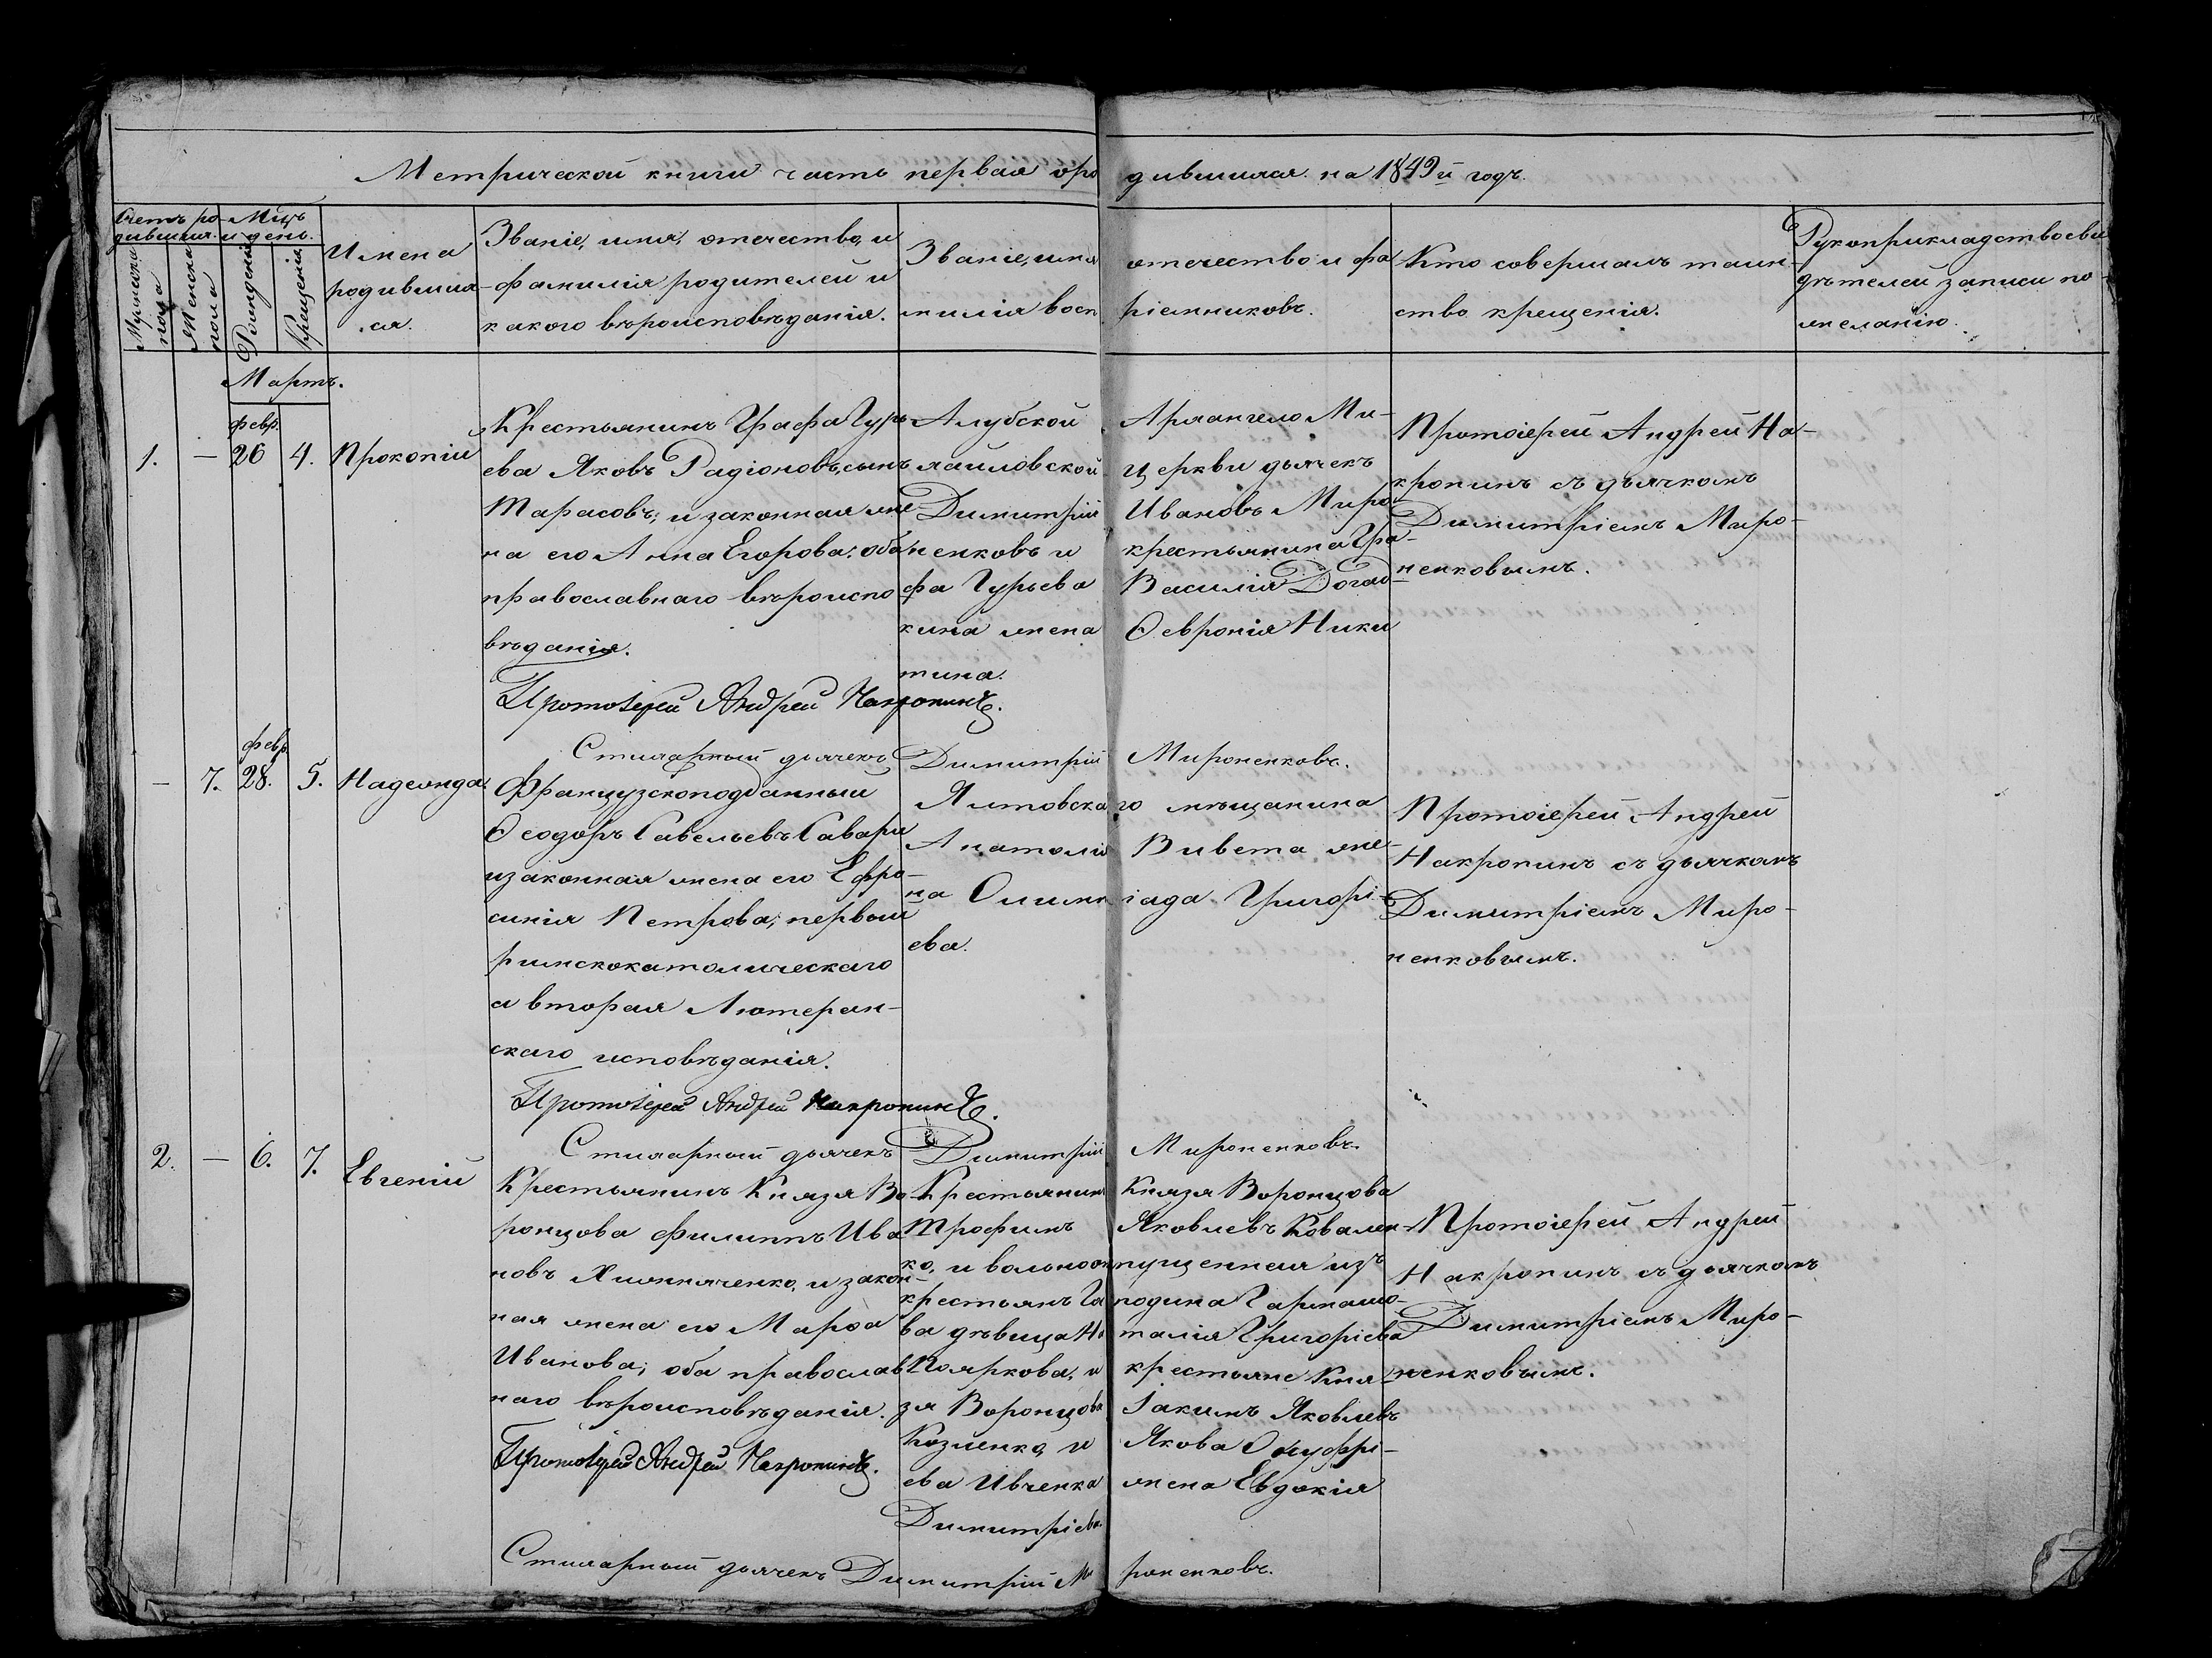 Метрической книги часть первая оро дившихся на 1849й годъ.
Счетъ ро-
дившихся.
Мцъ
и день.
Мужеска
пола
Женска
пола
Рожденія
Крещенія
Имена
родивших-
ся.
Званіе, имя, отечество, и
фамилія родителей и
какого вѣроисповѣданія.
Званіе, имя отечество и фа
милія восп ріемниковъ.
Кто совершалъ таин-
ство крещенія.
Рукоприкладство сви
дѣтелей записи по
желанію.
Мартъ.
1. — февр. 26 4. Прокопій
Крестьянинъ Графа Гурь
ева Яковъ Радіоновъ, сынъ
Тарасовъ; и законная же
на его Анна Егорова; оба
православнаго вѣроиспо
вѣданія.
Протоіерей Андрей Накропинъ.
Алубской Архангело Ми-
хаиловской церкви дьячекъ
Димитрій Ивановъ Миро
ненковъ и крестьянина Гра-
фа Гурьева Василія Догад
кина жена Ѳевронія Ники
тина.
Протоіерей Андрей На-
кропинъ съ дьячкомъ
Димитріемъ Миро-
ненковымъ.
Стихарный дьячекъ Димитрій Мироненковъ.
— 7. февр. 28. 5. Надежда
Французскоподданный
Ѳеодоръ Савельевъ Савари
и законная жена его Ефро-
синія Петрова; первый
римскокатолическаго
а вторая Лютеран-
скаго исповѣданія.
Протоіерей Андрей Накропинъ.
Ялтовскаго мѣщанина
Анатолія Вивета же-
на Олимпіада Григорі-
ева.
Протоіерей Андрей
Накропинъ съ дьячкомъ
Димитріемъ Миро-
ненковымъ.
Стихарный дьячекъ Димитрій Мироненковъ.
2. — 6. 7. Евгеній
Крестьянинъ Князя Во-
ронцова Филиппъ Ива
новъ и закон-
ная жена его Марѳа
Иванова; оба православ
наго вѣроисповѣданія.
Протоіерей Андрей Накропинъ.
Крестьянинъ Князя Воронцова
Трофимъ Яковлевъ Ковален-
ко, и вольноотпущенная изъ
крестьянъ Го подина
ва дѣвица На талія Григорьева
Пояркова, и крестьяне Кня-
зя Воронцова Іакимъ Яковлевъ
Козленко, и Якова Онуфрі-
ева Ивченка жена Евдокія
Димитріева.
Протоіерей Андрей
Накропинъ съ дьячкомъ
Димитріемъ Миро-
ненковымъ.
Стихарный дьячекъ Димитрій Ми роненковъ.